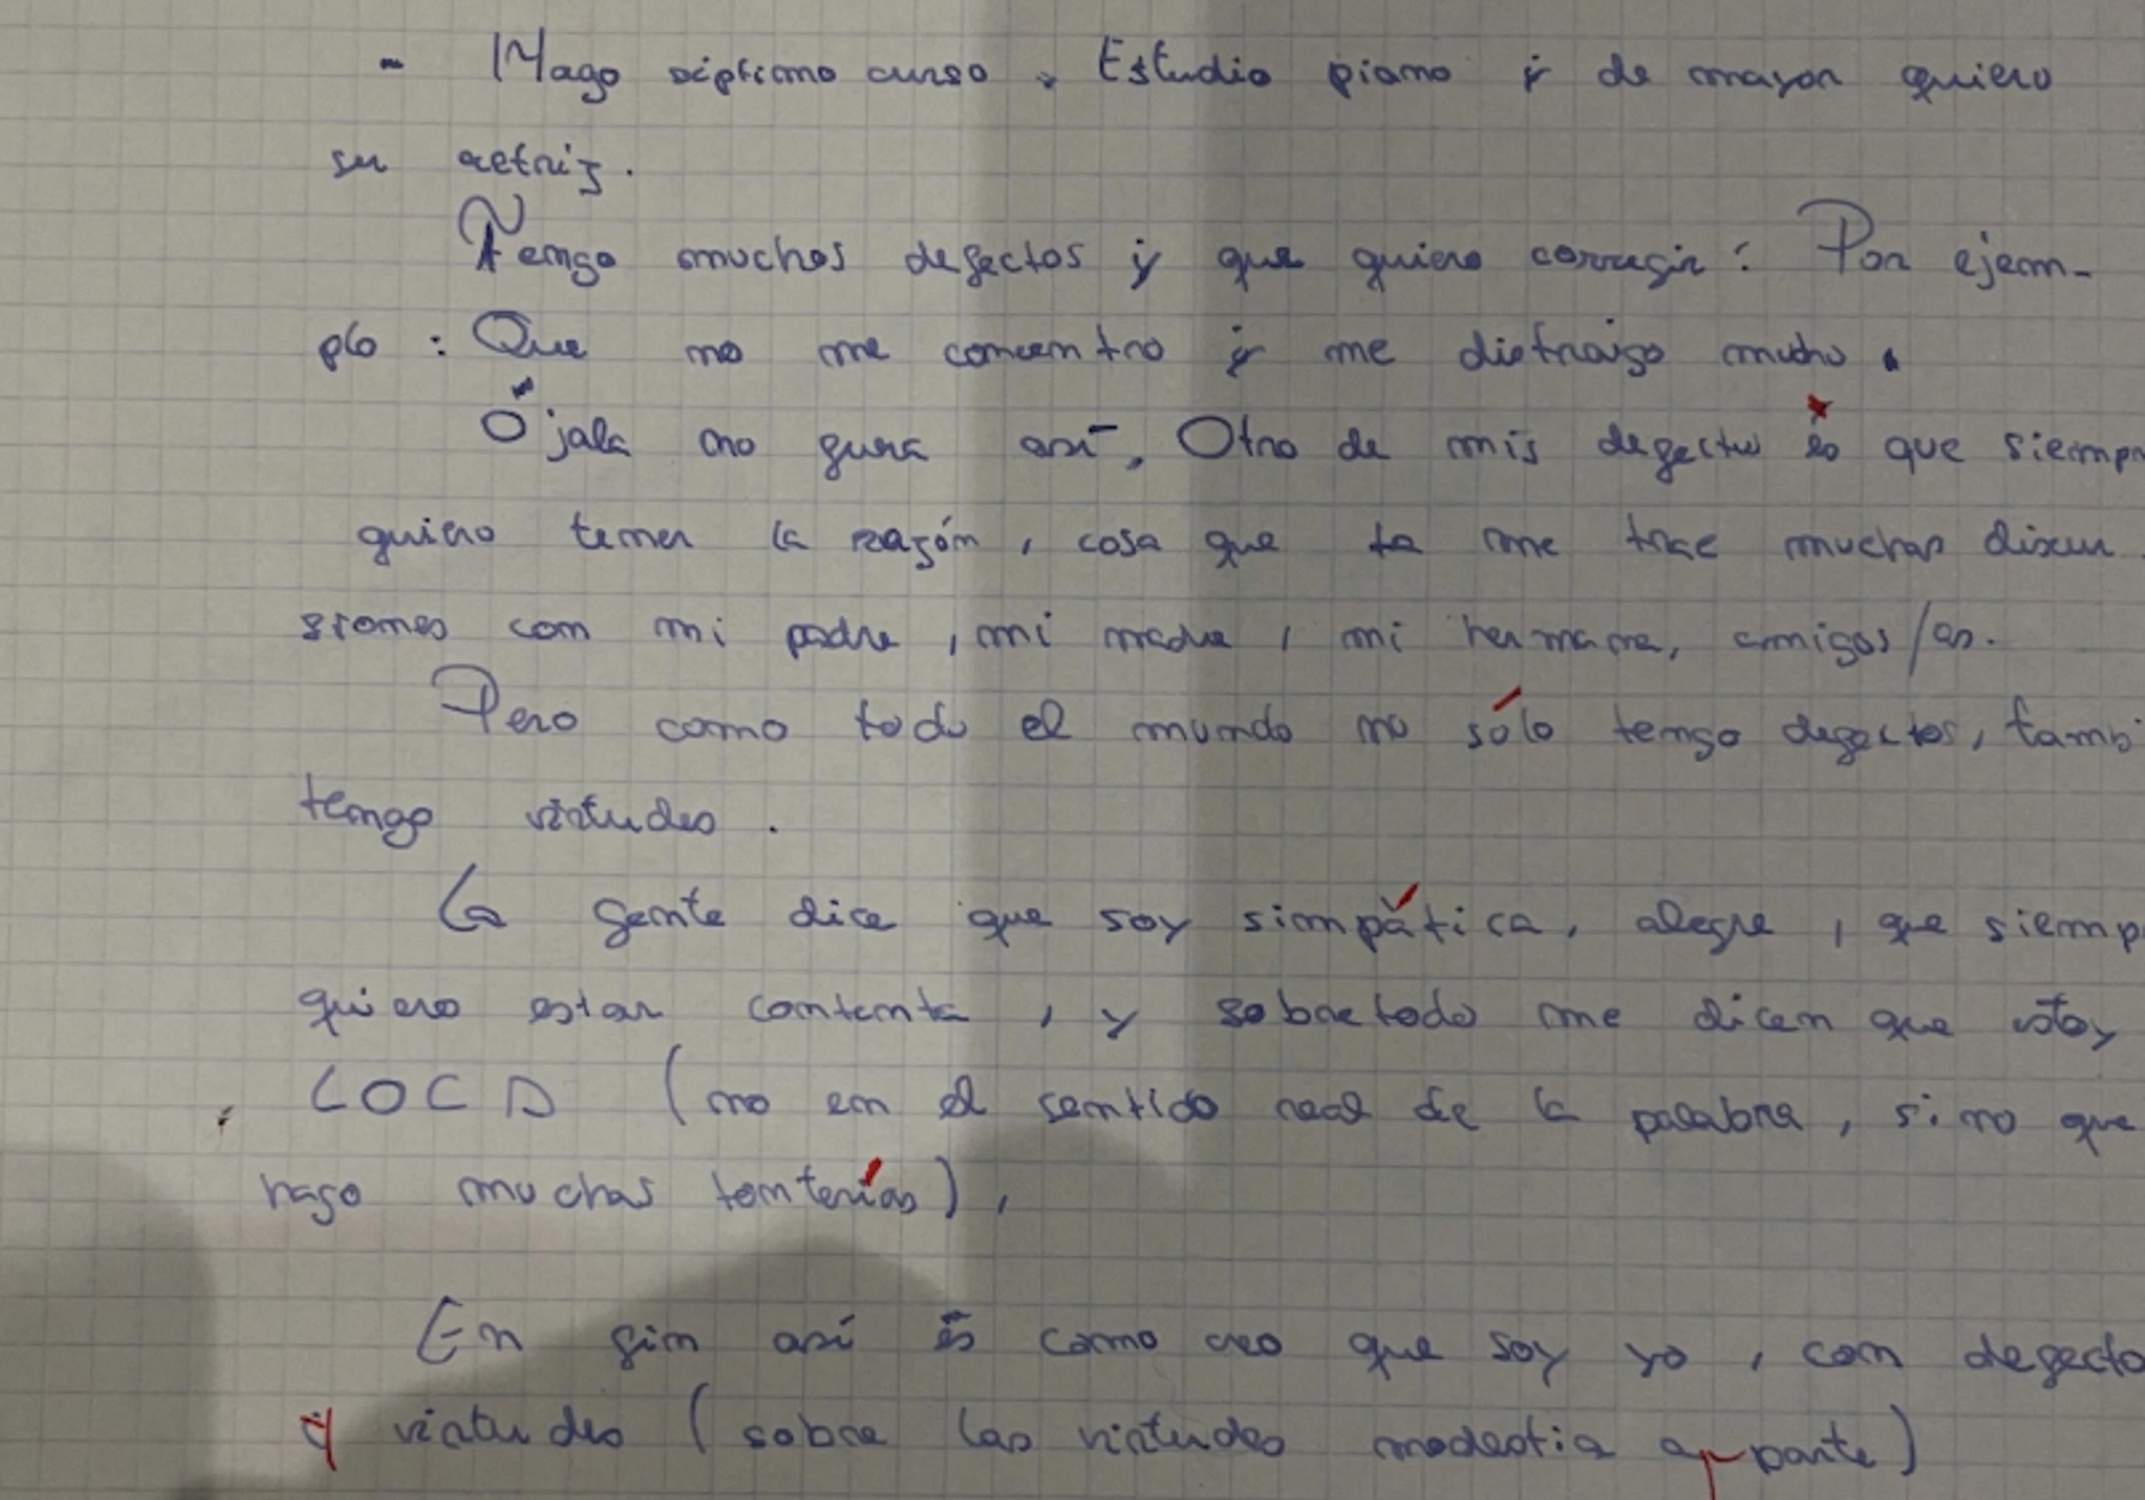 - Hago séptimo curso. Estudio piano y de mayor quiero
ser actriz.
Tengo muchos defectos y que quiero corregir: Por ejem-
plo: Que no me concentro y me distraigo mucho.
Ójala no fuera así, Otro de mis defectos es que siemp
quiero tener la razón, cosa que me trae muchas discu
siones con mi padre, mi madre, mi hermana, amigos/as.
Pero como todo el mundo no sólo tengo defectos, tambi
tengo virtudes.
La gente dice que soy simpática, alegre, que siemp
quiero estar contenta, y sobretodo me dicen que estoy
LOCA (no en el sentido real de la palabra, si no que
hago muchas tonterías),
En fin así es como creo que soy yo, con defecto
y virtudes (sobre las virtudes modestia aparte)